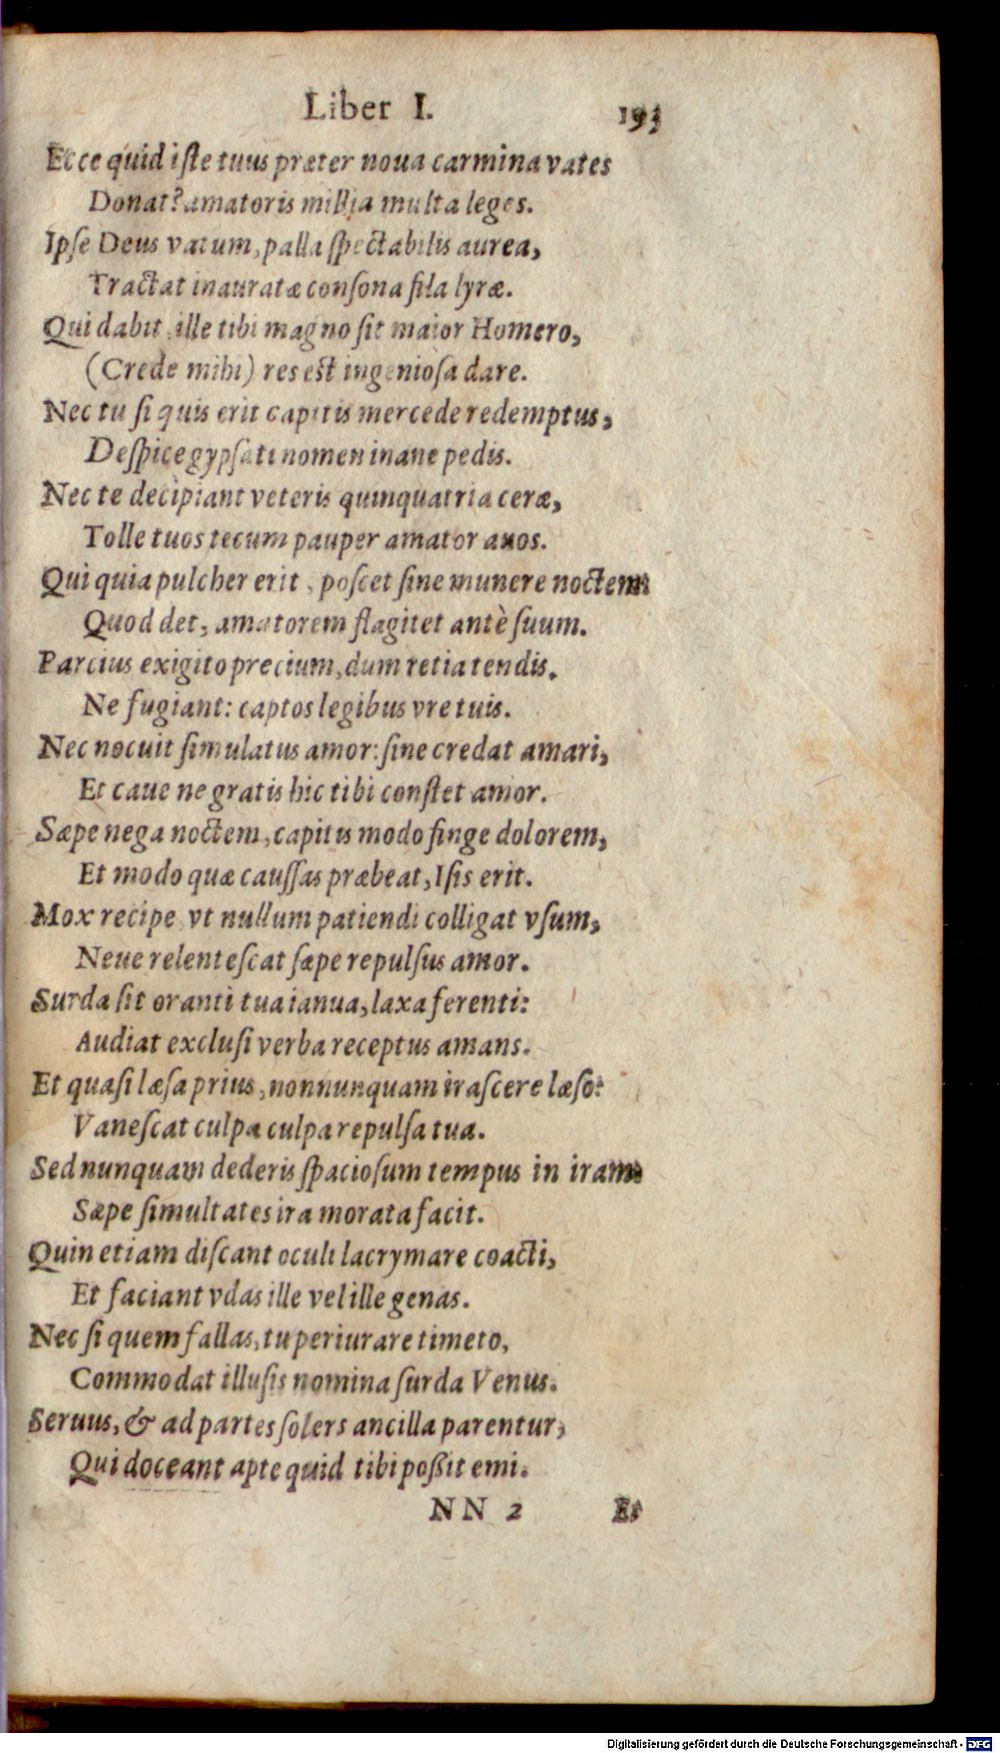 Liber I. 193
Ecce quid iste tuus præter noua carmina vates
Donat? amatoris millia multa leges.
Ipse Deus vatum, palla spectabilis aurea,
Tractat inauratæ consona fila lyræ.
Qui dabit, ille tibi magno sit maior Homero,
(Crede mihi) res est ingeniosa dare.
Nec tu si quis erit capitis mercede redemptus,
Despice gypsati nomen inane pedis.
Nec te decipiant veteris quinquatria ceræ,
Tolle tuos tecum pauper amator auos.
Qui quia pulcher erit, poscet sine munere noctem
Quod det, amatorem flagitet antè suum.
Parcius exigito precium, dum retia tendis.
Ne fugiant: captos legibus vre tuis.
Nec nocuit simulatus amor: sine credat amari,
Et caue ne gratis hic tibi constet amor.
Sæpe nega noctem, capitis modo finge dolorem,
Et modo quæ caussas præbeat, Isis erit.
Mox recipe vt nullum patiendi colligat vsum,
Neue relentescat sæpe repulsus amor.
Surda sit oranti tua ianua, laxa ferenti:
Audiat exclusi verba receptus amans.
Et quasi læsa prius, nonnunquam irascere læso:
Vanescat culpa culpa repulsa tua.
Sed nunquam dederis spaciosum tempus in iram
Sæpe simultates ira morata facit.
Quin etiam discant oculi lacrymare coacti,
Et faciant vdas ille vel ille genas.
Nec si quem fallas, tu periurare timeto,
Commodat illusis nomina surda Venus.
Seruus, & ad partes solers ancilla parentur,
Qui doceant apte quid tibi poßit emi.
NN 2 Et
Digitalisierung gefördert durch die Deutsche Forschungsgemeinschaft - DFG